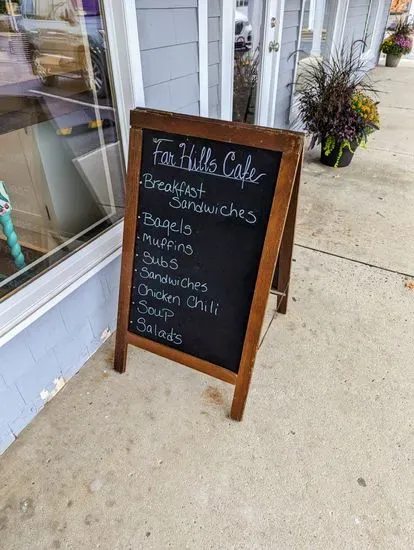 Far Hills Cafe
· Breakfast
Sandwiches
· Bagels
· Muffins
· Subs
· Sandwiches
· Chicken Chili
· Soup
· Salads